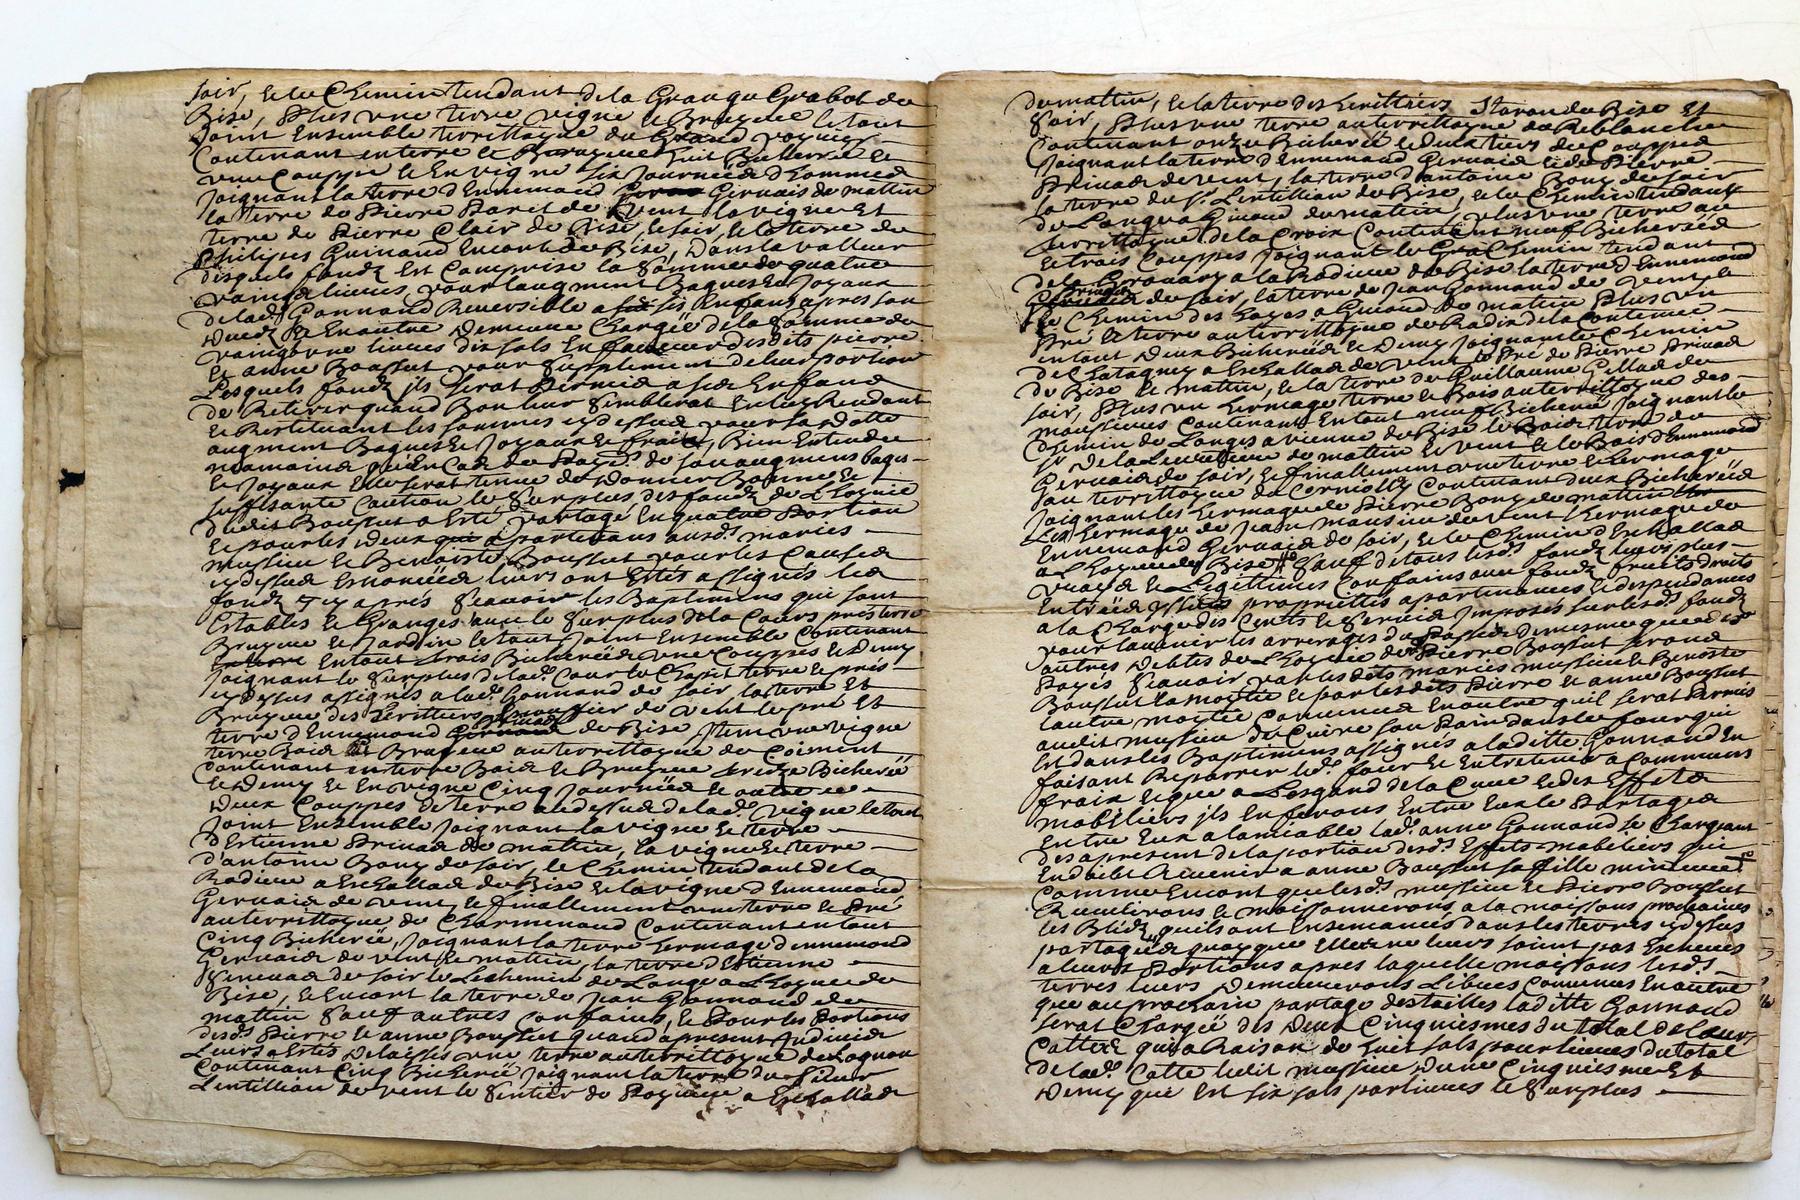 soir, et le Chemin tendant de la Grange Grabot de
Bise, Plus une terre vigne et Bruyere le tout
Joint Ensemble territtoyre du Grand
Contenant en terre et Bruyere huit Bicherée et
une Couppe et En vigne six Journées d'hommes
Joignant la terre d'Ennemond Gervais de mattin
la terre de Pierre de vent la vigne et
terre de Pierre Clair de Bise et soir, et la terre de
philippes Guinand Encort de Bise, Dans la valleur
disquels fondz est Comprise la somme de quatre
vaingt livres pour l'augment Bagues et Joyaux
de lad. Gonnand Reversible a ses Enfans apres son
decedz Et En autre demeure Chargée de la somme de
vaingt livres dix sols En faveur desdits pierre
et anne Boussut pour supplement de leur portion
Lesquels fondz ils serat Permis a ses Enfans
de Retirer quand Bon leur semblerat En luy Rendant
et Restituant les sommes cy dessus pour sa dotte
augment Bagues et Joyaux et fraix, Bien Entendu
neamains qu'En Cas de de son augment bagues
et Joyaux Elle serat tenue de donner Bonne et
suffisante Caution le surplus des fondz de L'hoyrie
dudit Boussut a Esté partagé En quatre Portion
et pour les deux apartenans ausd. mariés
mussieu et Benoiste Boussut pour les Causes
cy dessus Enoncées leurs ont Estés assignés les
fondz cy aprés scavoir les Baptimens qui sont
Estables et Granges avec le surplus de la Cours prés terre
Bruyere et Jardin le tout Joint Ensemble Contenant
Entout trois Bicherées une Couppes et demy
Joignant le surplus de lad. Cour le Chapit terre et prés
cy dessus assignés a lad. Gonnand de soir, la terre et
Bruyere des heritiers de vent le pré et
terre d'Ennemond Privas de Bise Item une vigne
terre Bois et Bruyere au territtoyre de Coiment
Contenant en terre Bois et Bruyere treize Bicherée
et demy et En vigne Cinq Journées et outre ce
deux Couppes de terre au dessus de lad. vigne le tout
Joint Ensemble Joignant la vigne et terre
d'Estienne Privas de mattin, la vigne et terre
d'antoine Bony de soir, le Chemin tendant de la
Rodiere a Eschallas de Bise et la vigne d'Ennemond
Gervais de vent, et finallement une terre et Pré
au territtoyre de Charmenoud Contenant en tout
Cinq Bicherée, Joignant la terre hermage d'ennemond
Gervais de vent et mattin, la terre d'Estienne
de soir et Le chemin de Longe a L'hoyrie de
Bise, et Encort la terre de Jean Gonnand de
mattin sauf autres Confains, et Pour les Portions
desd. Pierre et anne Boussut quand apresent Indivise
Leurs a Estés delaissés une terre au territtoyre de
Contenant Cinq Bicherée Joignant la terre du sieur
Lentillion de vent le sentier de a Eschallas
de mattin, et la terre des heritiers de Bise Et
soir, Plus une terre au territtoyre de Reblanche
Contenant onze Bicherée et deux tiers de Couppes
Joignant la terre d'Ennemond Gervais et de Pierre
Privas de vent, la terre d'antoine Bony de soir
la terre du sr. Lentillion de Bise, et le Chemin tendant
de Longe a Givord du matin, plus une terre au
territtoyre de la Croix Contenant neuf Bicherées
et trois Couppes Joignant le Gra Chemin tendant
de la a la Rodiere de Bise la terre d'Ennemond
de soir, la terre de Jean Gonnand de vent et
Le Chemin des hayes a Givord de matin Plus un
Pré et terre au territtoyre de Radis de la Contenue
en tout deux Bicherées et demy Joignant le Chemin
de Chatagney a Eschallas de vent le Pré de Pierre Privas
de Bise et mattin, et la terre de Guillaume Gillas de
soir, Plus un hermage terre et Bois au territtoyre des
moussieres Contenant En tout neuf Bicherée Joignant le
Chemin de Longes a vienne de Bise le Bois terre du
sr. de la de mattin et vent et le Bois d'Ennemond
Gervais de soir, Et finallement une terre et hermage
sou territtoyre de Cornilly Contenant deux Bicherées
Joignant les hermage de Pierre Bony de mattin
Les hermage de Jean mansieu de vent l'hermage de
Ennemond Gervais de soir, et le Chemin d'Eschallas
a L'hoyrie de Bise Sauf de tous lesd. fondz leurs plus
vrays et Legittimes Confains aux fondz fruits droits
Entrées yssues proprietés apartenances et despendances
a la Charge des Cents et servis Imposés sur lesd. fondz
pour l'avenir les arrerages du Passé demesme que les
autres debtes de L'hoyrie dud. Pierre Boussut serons
Payés scavoir par lesdits mariés mussieu et Benoite
Boussut la moytié et par lesdits Pierre et anne Boussut
l'autre moytié Convenu En autre qu'il serat Permis
audit mussieu de Cuire son Pain dans le four qui
est dans les Baptimens assignés a laditte Gonnand En
faisant Reparrer led. four et Entretenir a Communs
frais et que a L'esgard de la Cuve et des Effets
mobiliers ils En ferons Entre Eux le Partage
Entre Eux a l'amiable lad. anne Gonnand se Chargeant
des apresent de la portion desd. Effets mobeliers qui
En doibt Revenir a anne Boussut sa fille mineure
Comme Encort que lesd. mussieu et Pierre Boussut
Recueilirons et moissonnerons a la moissons prochaines
les Bledz qu'ils ont Ensemancés dans les terres cy dessus
partagées quoy que Elles ne leurs soient pas Escheues
a leurs Portions apres laquelle moissons lesd.
terres leurs demeurerons Libres Convenu En autre
que au prochain partage des tailles laditte Gonnand
serat Chargée des deux Cinquiesmes du total de leurs
Cottes qui a Raison de huit sols pour livres du total
de lad. Cotte ledit mussieu d'une Cinquiesme et
demy que est six sols par livres et le surplus